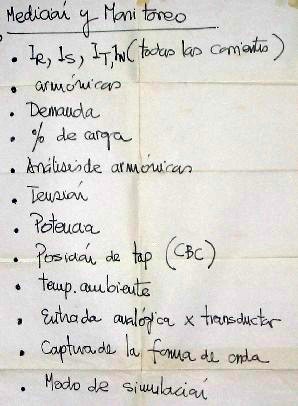 Medición y Monitoreo
• IR, IS, IT, IN (todas las corrientes)
• armónicas
• Demanda
• % de carga
• Análisis de armónicas
• Tensión
• Potencia
• Posición de tap (CBC)
• temp. ambiente
• Entrada analógica x transductor
• Captura de la forma de onda
• Modo de simulación